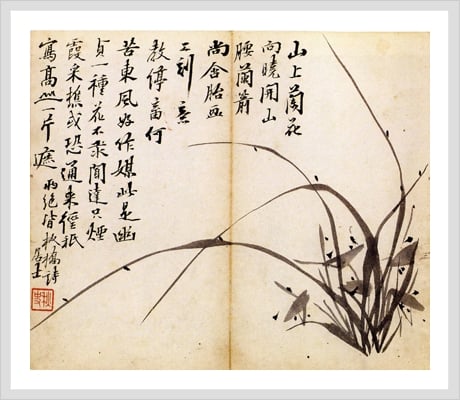 山上蘭花
向曉開山
腰蘭箭
尚含胎画
工刻意
教停蓄何
苦東風好作媒此是幽
貞一種花不求聞達只煙
霞采樵或恐通来徑祇
寫高山一片遮
兩絕皆板橋詩
居士